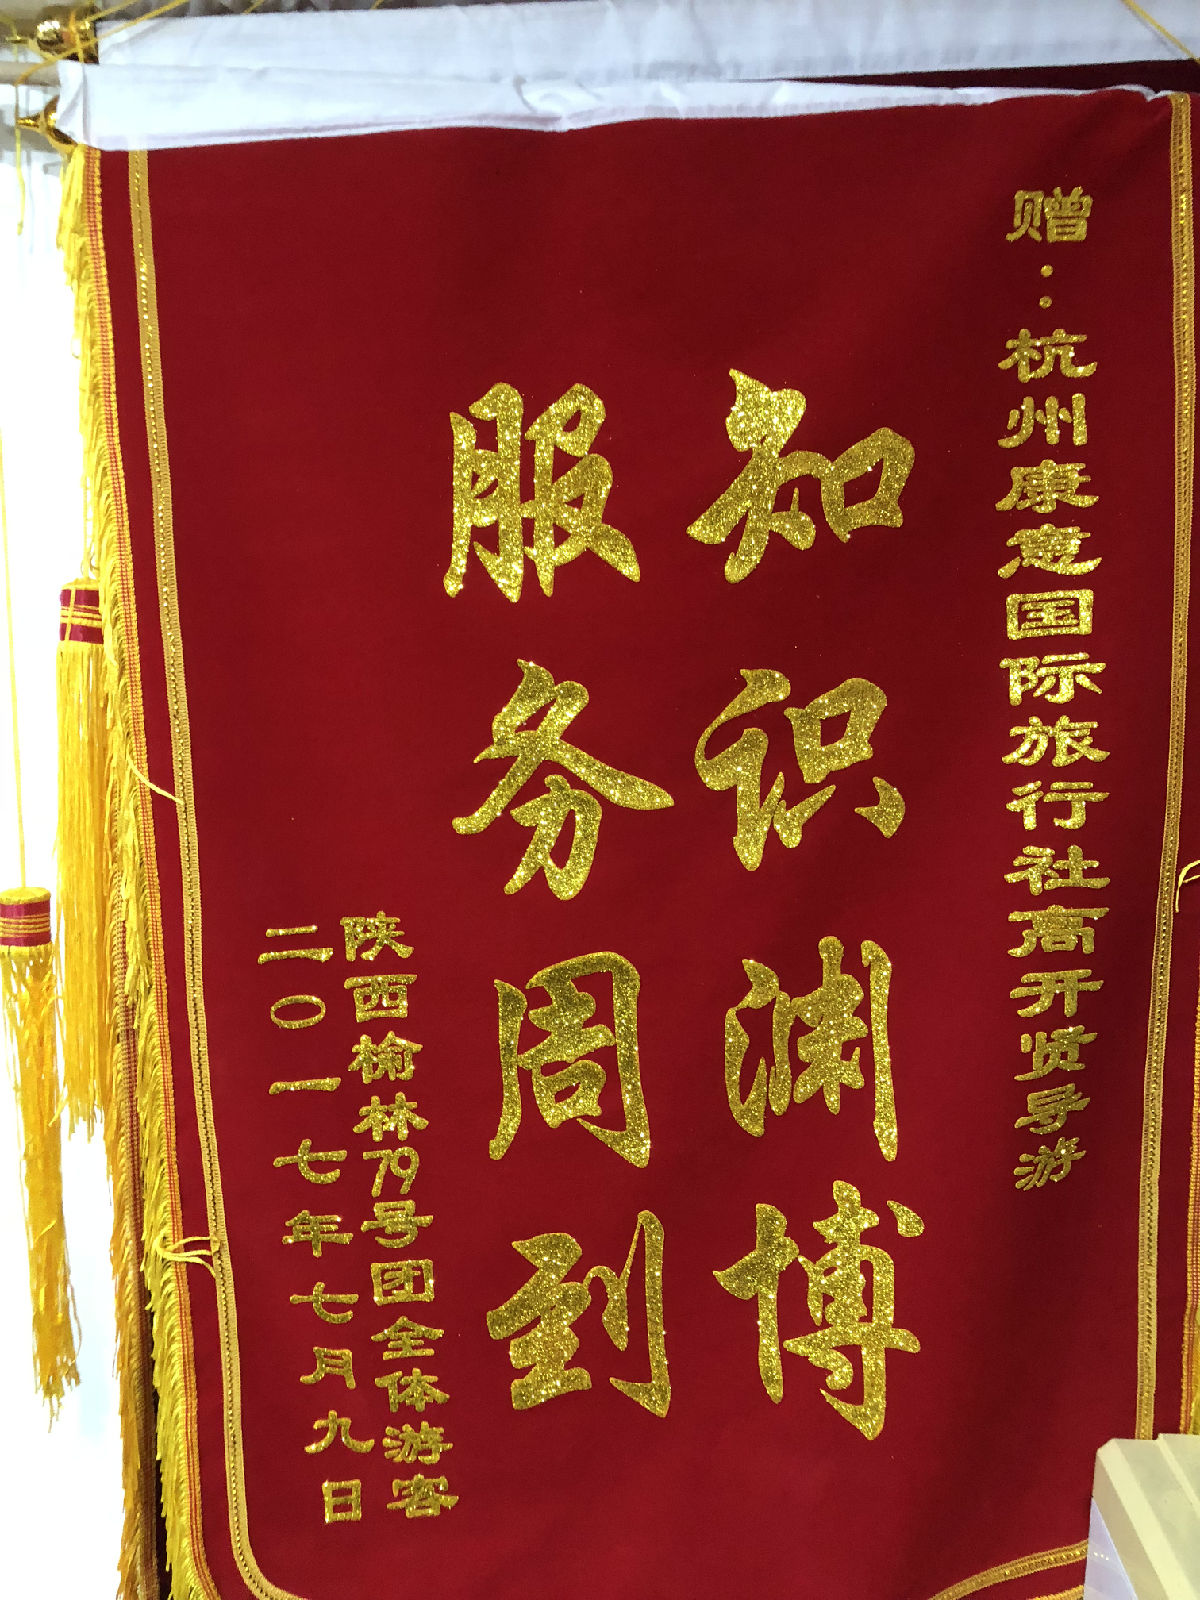 赠：杭州康意国际旅行社高开贤导游
知识渊博
服务周到
陕西榆林79号团全体游客
二〇一七年七月九日